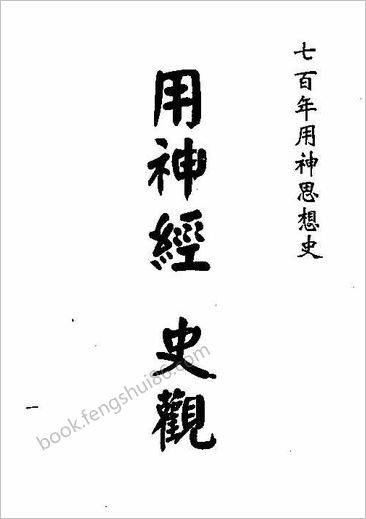 七百年用神思想史
用神經 史觀
一
book.fengshui86.com